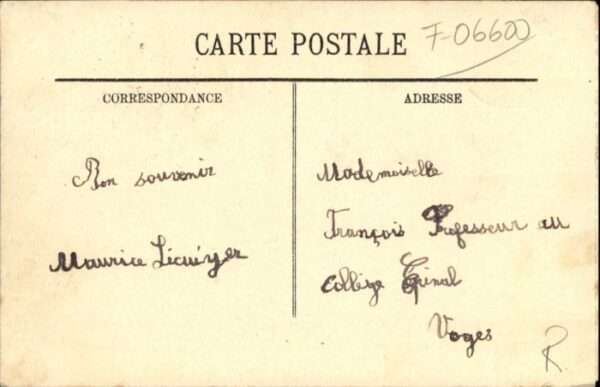 CARTE POSTALE
7-06600
CORRESPONDANCE
ADRESSE
Bon souvenir
Maurice Lécuÿer
Mademoiselle
François Professeur au
Collège Epinal
Voges
R